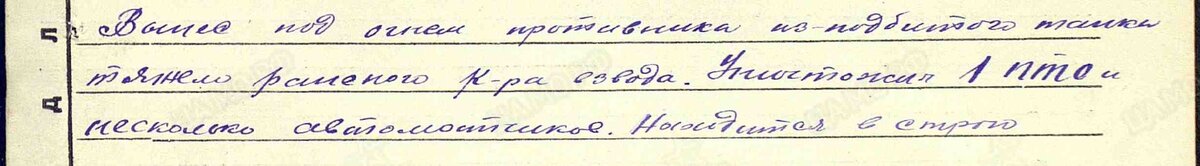 Вынес под огнем противника из-подбитого танка
тяжело раненого К-ра взвода. Уничтожил 1 ПТО и
несколько автоматчиков. Находится в строю
Д Л